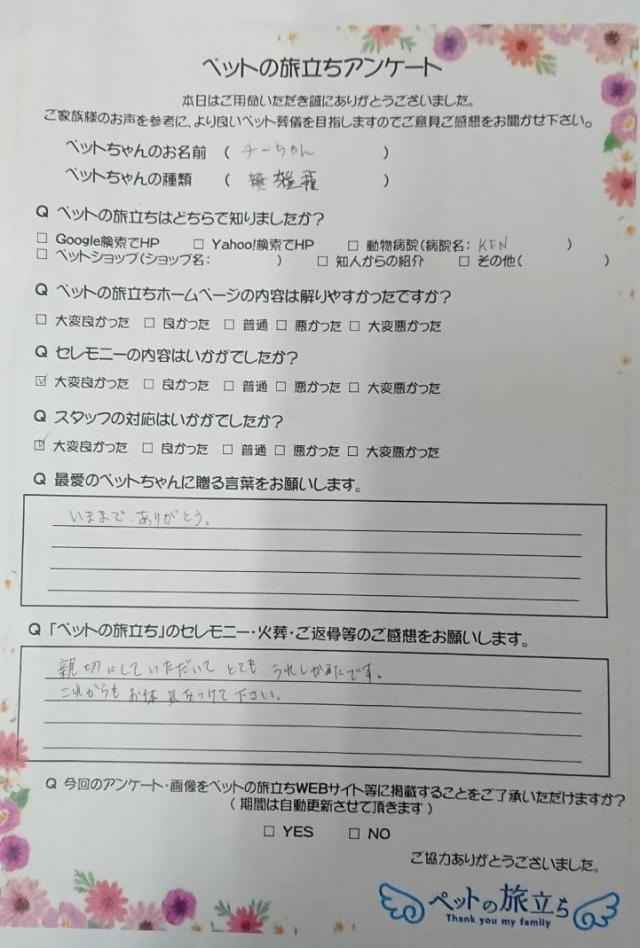 ペットの旅立ちアンケート
本日はご用命いただき誠にありがとうございました。
ご家族様のお声を参考に、より良いペット葬儀を目指しますのでご意見ご感想をお聞かせ下さい。
ペットちゃんのお名前 ( チーちゃん )
ペットちゃんの種類 ( 雑種 )
Q ペットの旅立ちはどちらで知りましたか?
□ Google検索でHP □ Yahoo!検索でHP □ 動物病院(病院名: KEN )
□ ペットショップ(ショップ名: ) □ 知人からの紹介 □ その他( )
Q ペットの旅立ちホームページの内容は解りやすかったですか?
□ 大変良かった □ 良かった □ 普通 □ 悪かった □ 大変悪かった
Q セレモニーの内容はいかがでしたか?
☑ 大変良かった □ 良かった □ 普通 □ 悪かった □ 大変悪かった
Q スタッフの対応はいかがでしたか?
☑ 大変良かった □ 良かった □ 普通 □ 悪かった □ 大変悪かった
Q 最愛のペットちゃんに贈る言葉をお願いします。
いままで、ありがとう。
Q 「ペットの旅立ち」のセレモニー・火葬・ご返骨等のご感想をお願いします。
親切にしていただいて とても うれしかったです。
これからも お体 気をつけて下さい。
Q 今回のアンケート・画像をペットの旅立ちWEBサイト等に掲載することをご了承いただけますか?
( 期間は自動更新させて頂きます )
□ YES □ NO
ご協力ありがとうございました。
ペットの旅立ち
Thank you my family